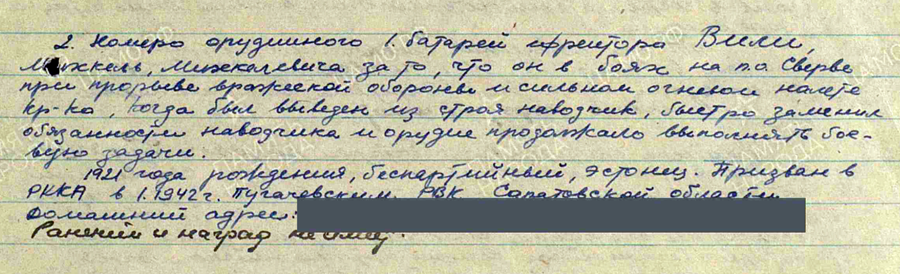 2. Номеро орудийного 1. батарей ефрейтора Вили,
Михкель, Михкелевича за то, что он в боях на п.о. Сверве
при прорыве вражеской обороны и сильном огневом налете
кр-ка, когда был выведен из строя наводчик, быстро заменил
обязанности наводчика и орудие продолжало выполнять бое-
вую задачи.
1921 года рождения, беспартийный, эстонец. Призван в
РККА в 1.1942 г. Пугачевским РВК Саратовской области
Домашний адрес:
Ранений и наград не имеет.